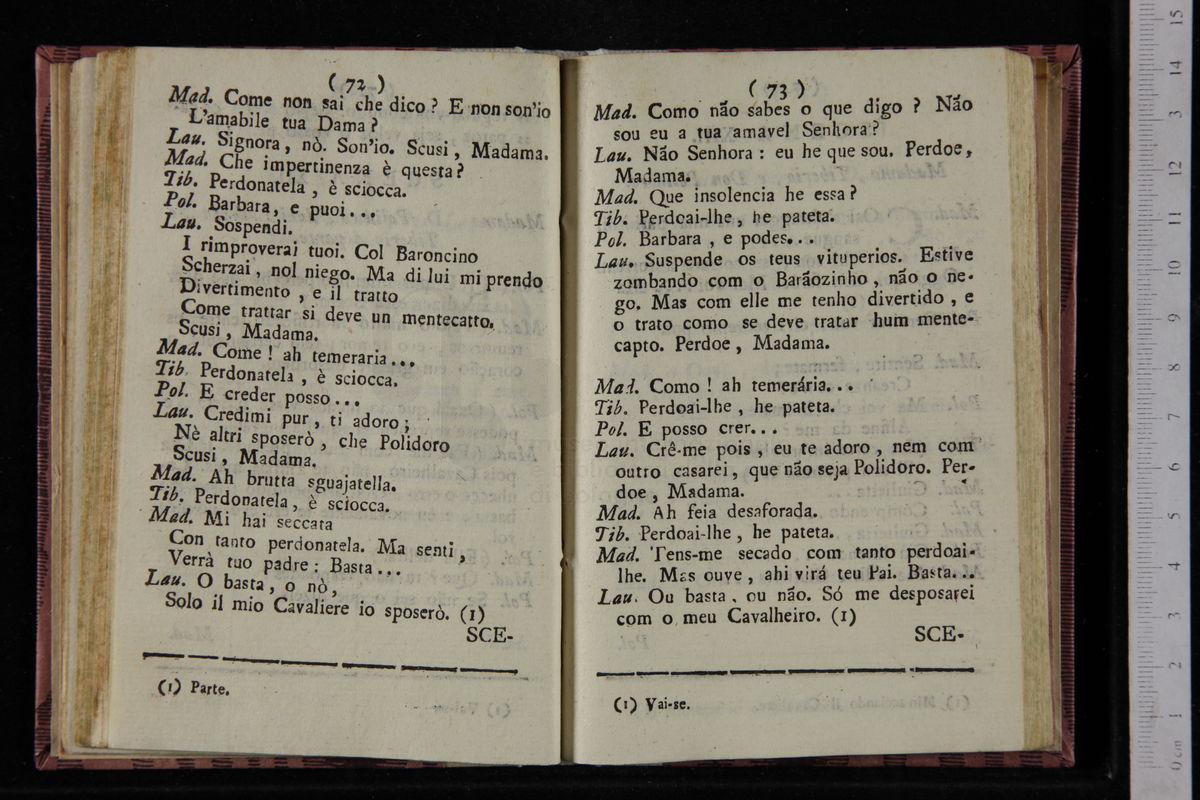 (72)
Mad. Come non sai che dico? E non son'io
L'amabile tua Dama?
Lau. Signora, nò. Son'io. Scusi, Madama.
Mad. Che impertinenza è questa?
Tib. Perdonatela, è sciocca.
Pol. Barbara, e puoi...
Lau. Sospendi.
I rimproverai tuoi. Col Baroncino
Scherzai, nol niego. Ma di lui mi prendo
Divertimento, e il tratto
Come trattar si deve un mentecatto.
Scusi, Madama.
Mad. Come! ah temeraria...
Tib. Perdonatela, è sciocca.
Pol. E creder posso...
Lau. Credimi pur, ti adoro;
Nè altri sposerò, che Polidoro
Scusi, Madama.
Mad. Ah brutta sguajatella.
Tib. Perdonatela, è sciocca.
Mad. Mi hai seccata
Con tanto perdonatela. Ma senti,
Verrà tuo padre: Basta...
Lau. O basta, o nò,
Solo il mio Cavaliere io sposerò. (1)
SCE-
(1) Parte.
(73)
Mad. Como não sabes o que digo? Não
sou eu a tua amavel Senhora?
Lau. Não Senhora: eu he que sou. Perdoe,
Madama.
Mad. Que insolencia he essa?
Tib. Perdoai-lhe, he pateta.
Pol. Barbara, e podes...
Lau. Suspende os teus vituperios. Estive
zombando com o Barãozinho, não o ne-
go. Mas com elle me tenho divertido, e
o trato como se deve tratar hum mente-
capto. Perdoe, Madama.
Mad. Como! ah temerária...
Tib. Perdoai-lhe, he pateta.
Pol. E posso crer...
Lau. Crê-me pois, eu te adoro, nem com
outro casarei, que não seja Polidoro. Per-
doe, Madama.
Mad. Ah feia desaforada.
Tib. Perdoai-lhe, he pateta.
Mad. Tens-me secado com tanto perdoai-
lhe. Mas ouve, ahi virá teu Pai. Basta...
Lau. Ou basta, ou não. Só me desposarei
com o meu Cavalheiro. (1)
SCE-
(1) Vai-se.
0 cm 1 2 3 4 5 6 7 8 9 10 11 12 13 14 15